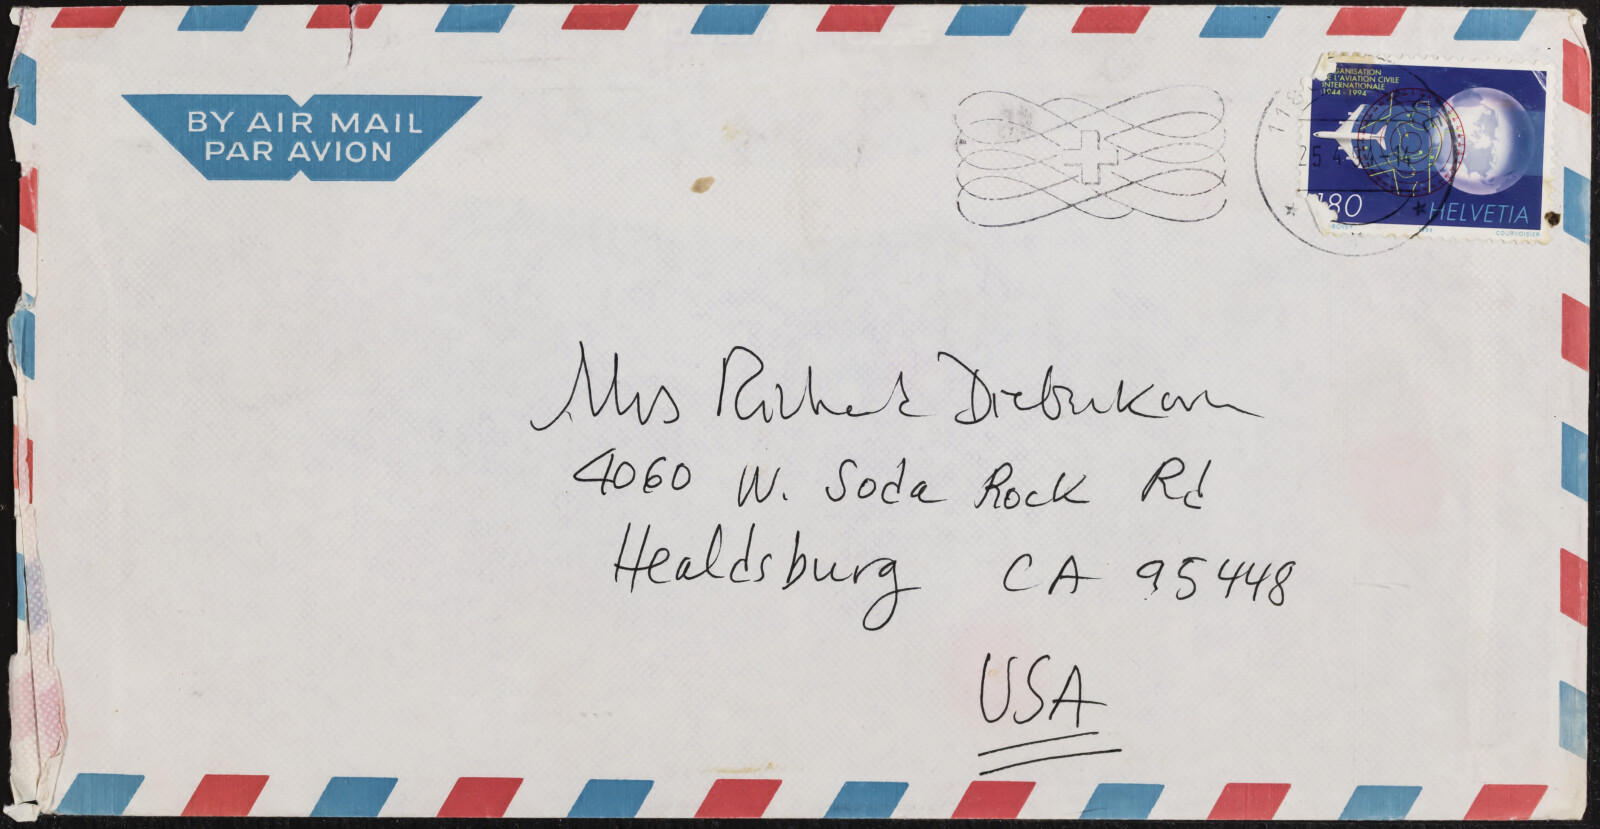 BY AIR MAIL
PAR AVION
DE L'AVIATION CIVILE
INTERNATIONALE
1944 - 1994
180
HELVETIA
COURVOISIER
Mrs Richard Diebenkorn
4060 W. Soda Rock Rd
Healdsburg CA 95448
USA